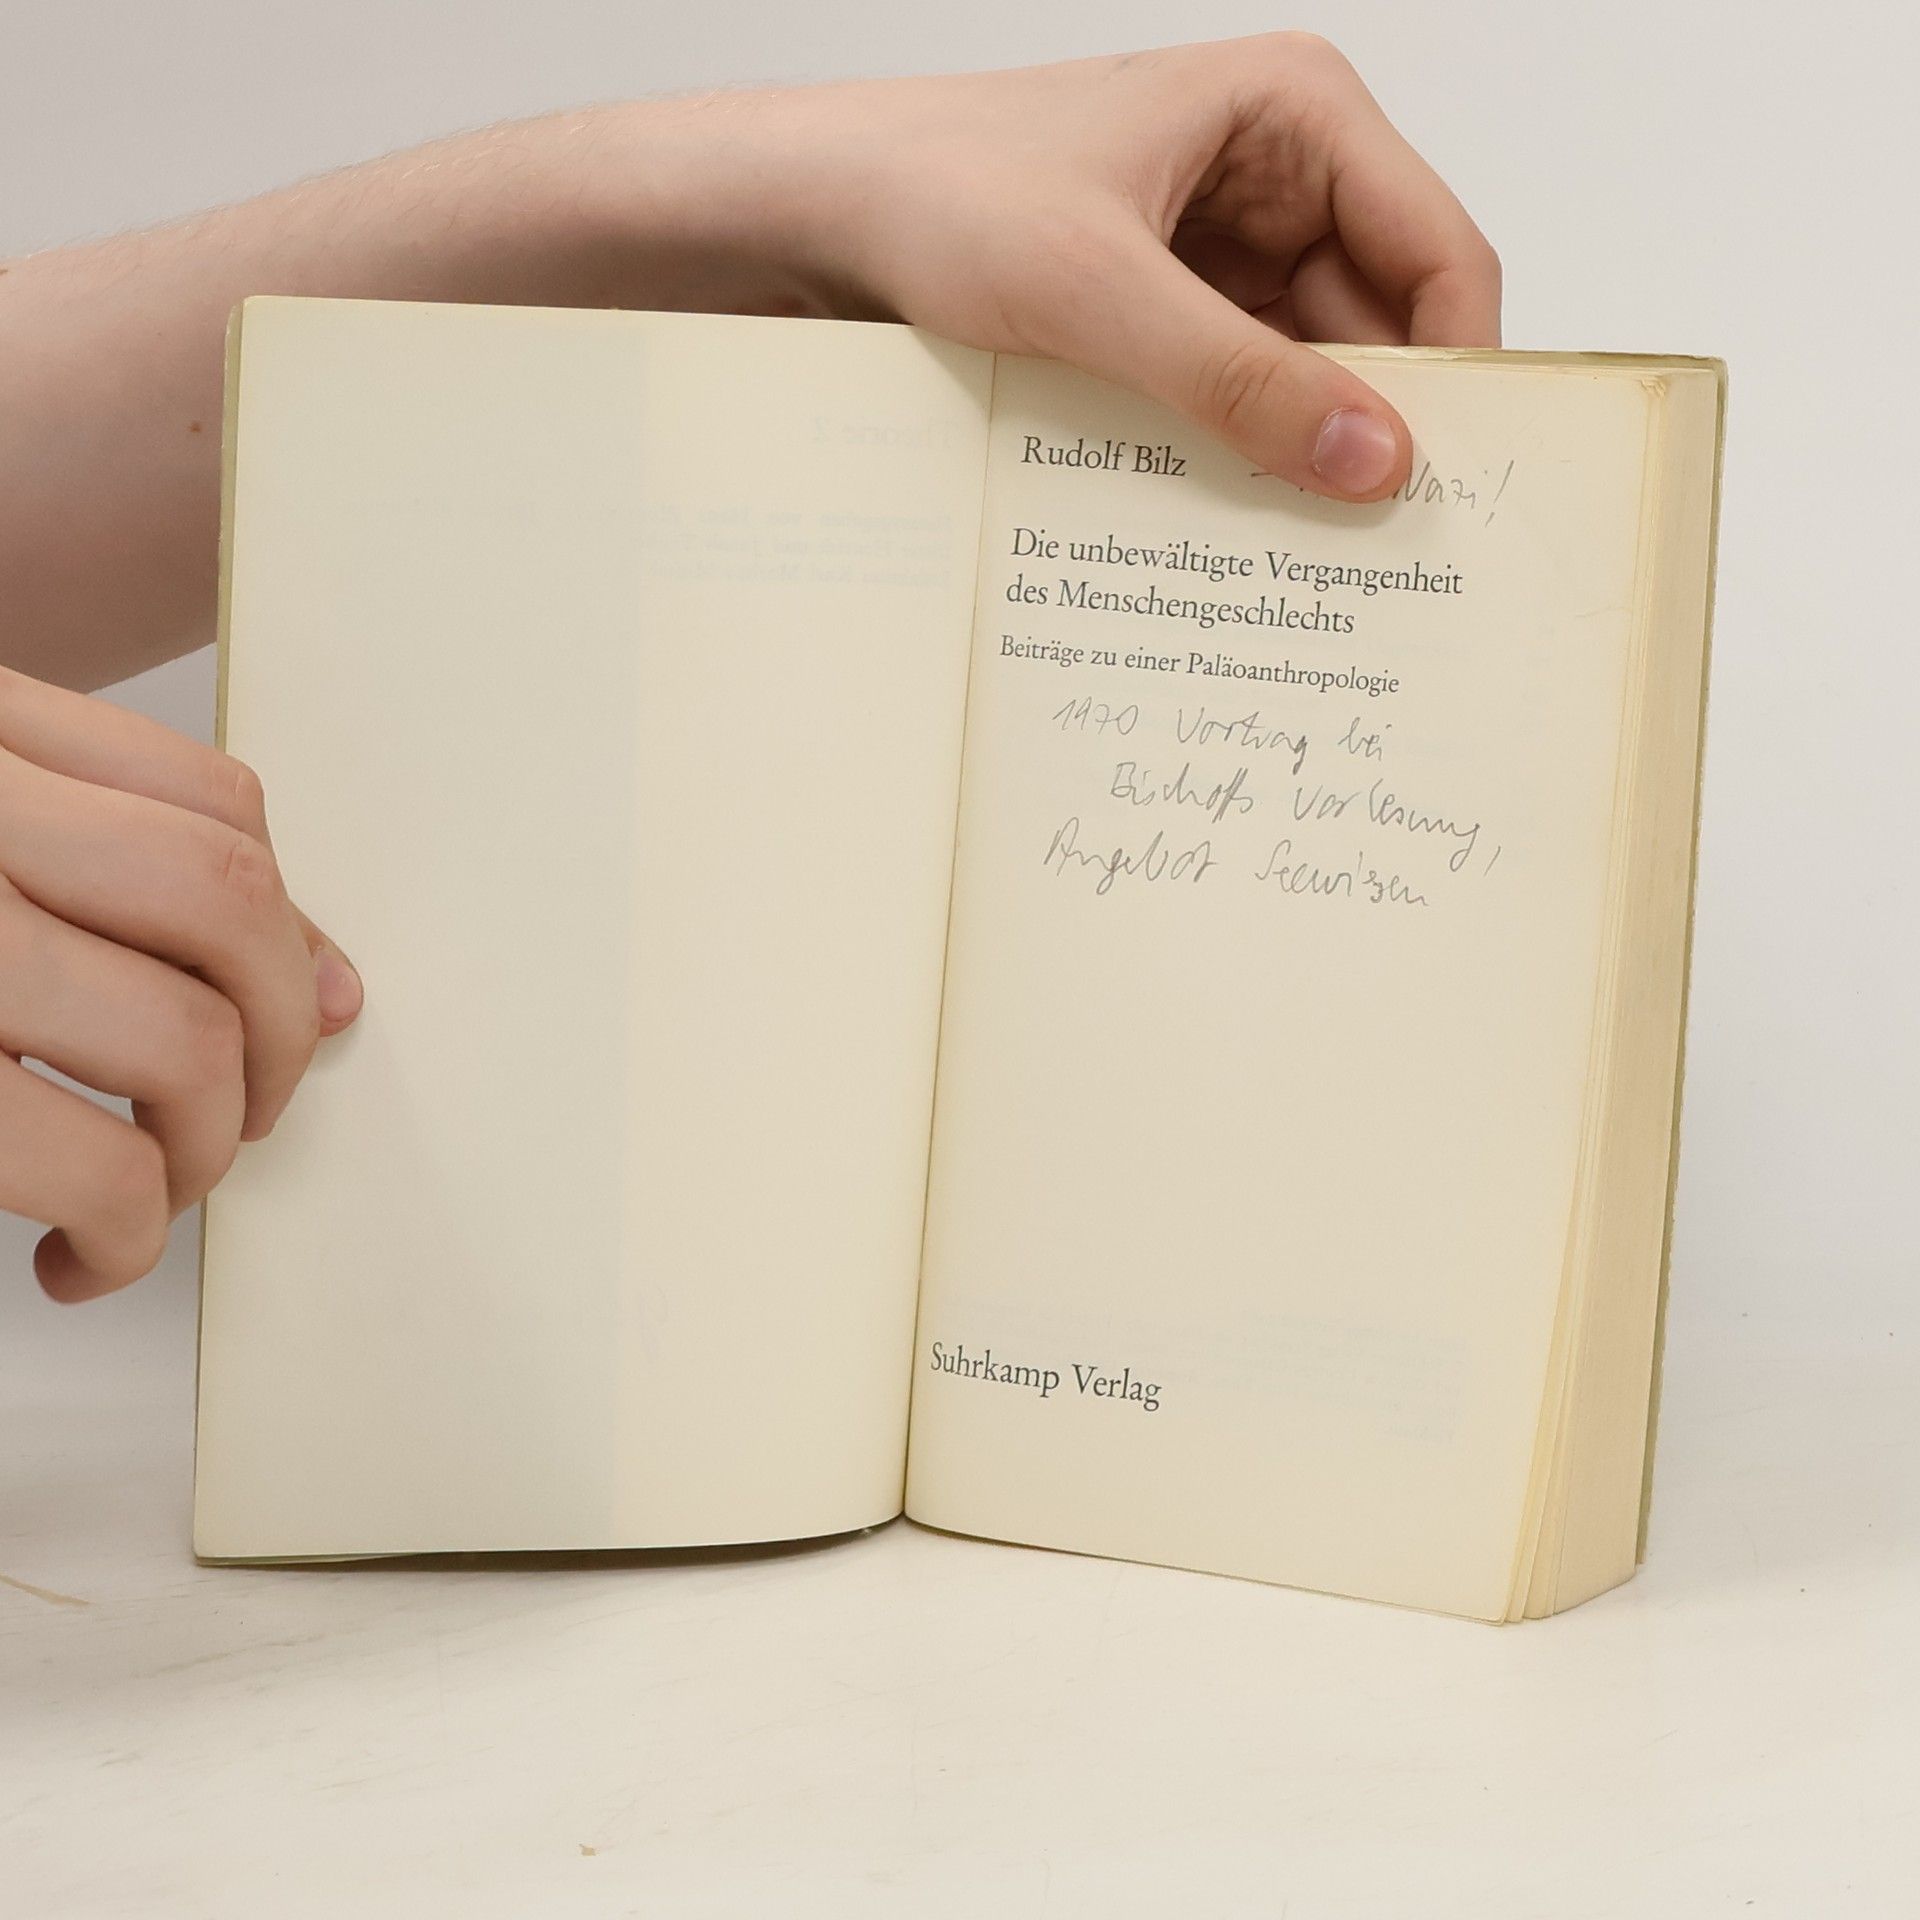 Rudolf Bilz
Nazi!
Die unbewältigte Vergangenheit
des Menschengeschlechts
Beiträge zu einer Paläoanthropologie
1970 Vortrag bei
Bischoffs Vorlesung,
Angebot Seewisen
Suhrkamp Verlag